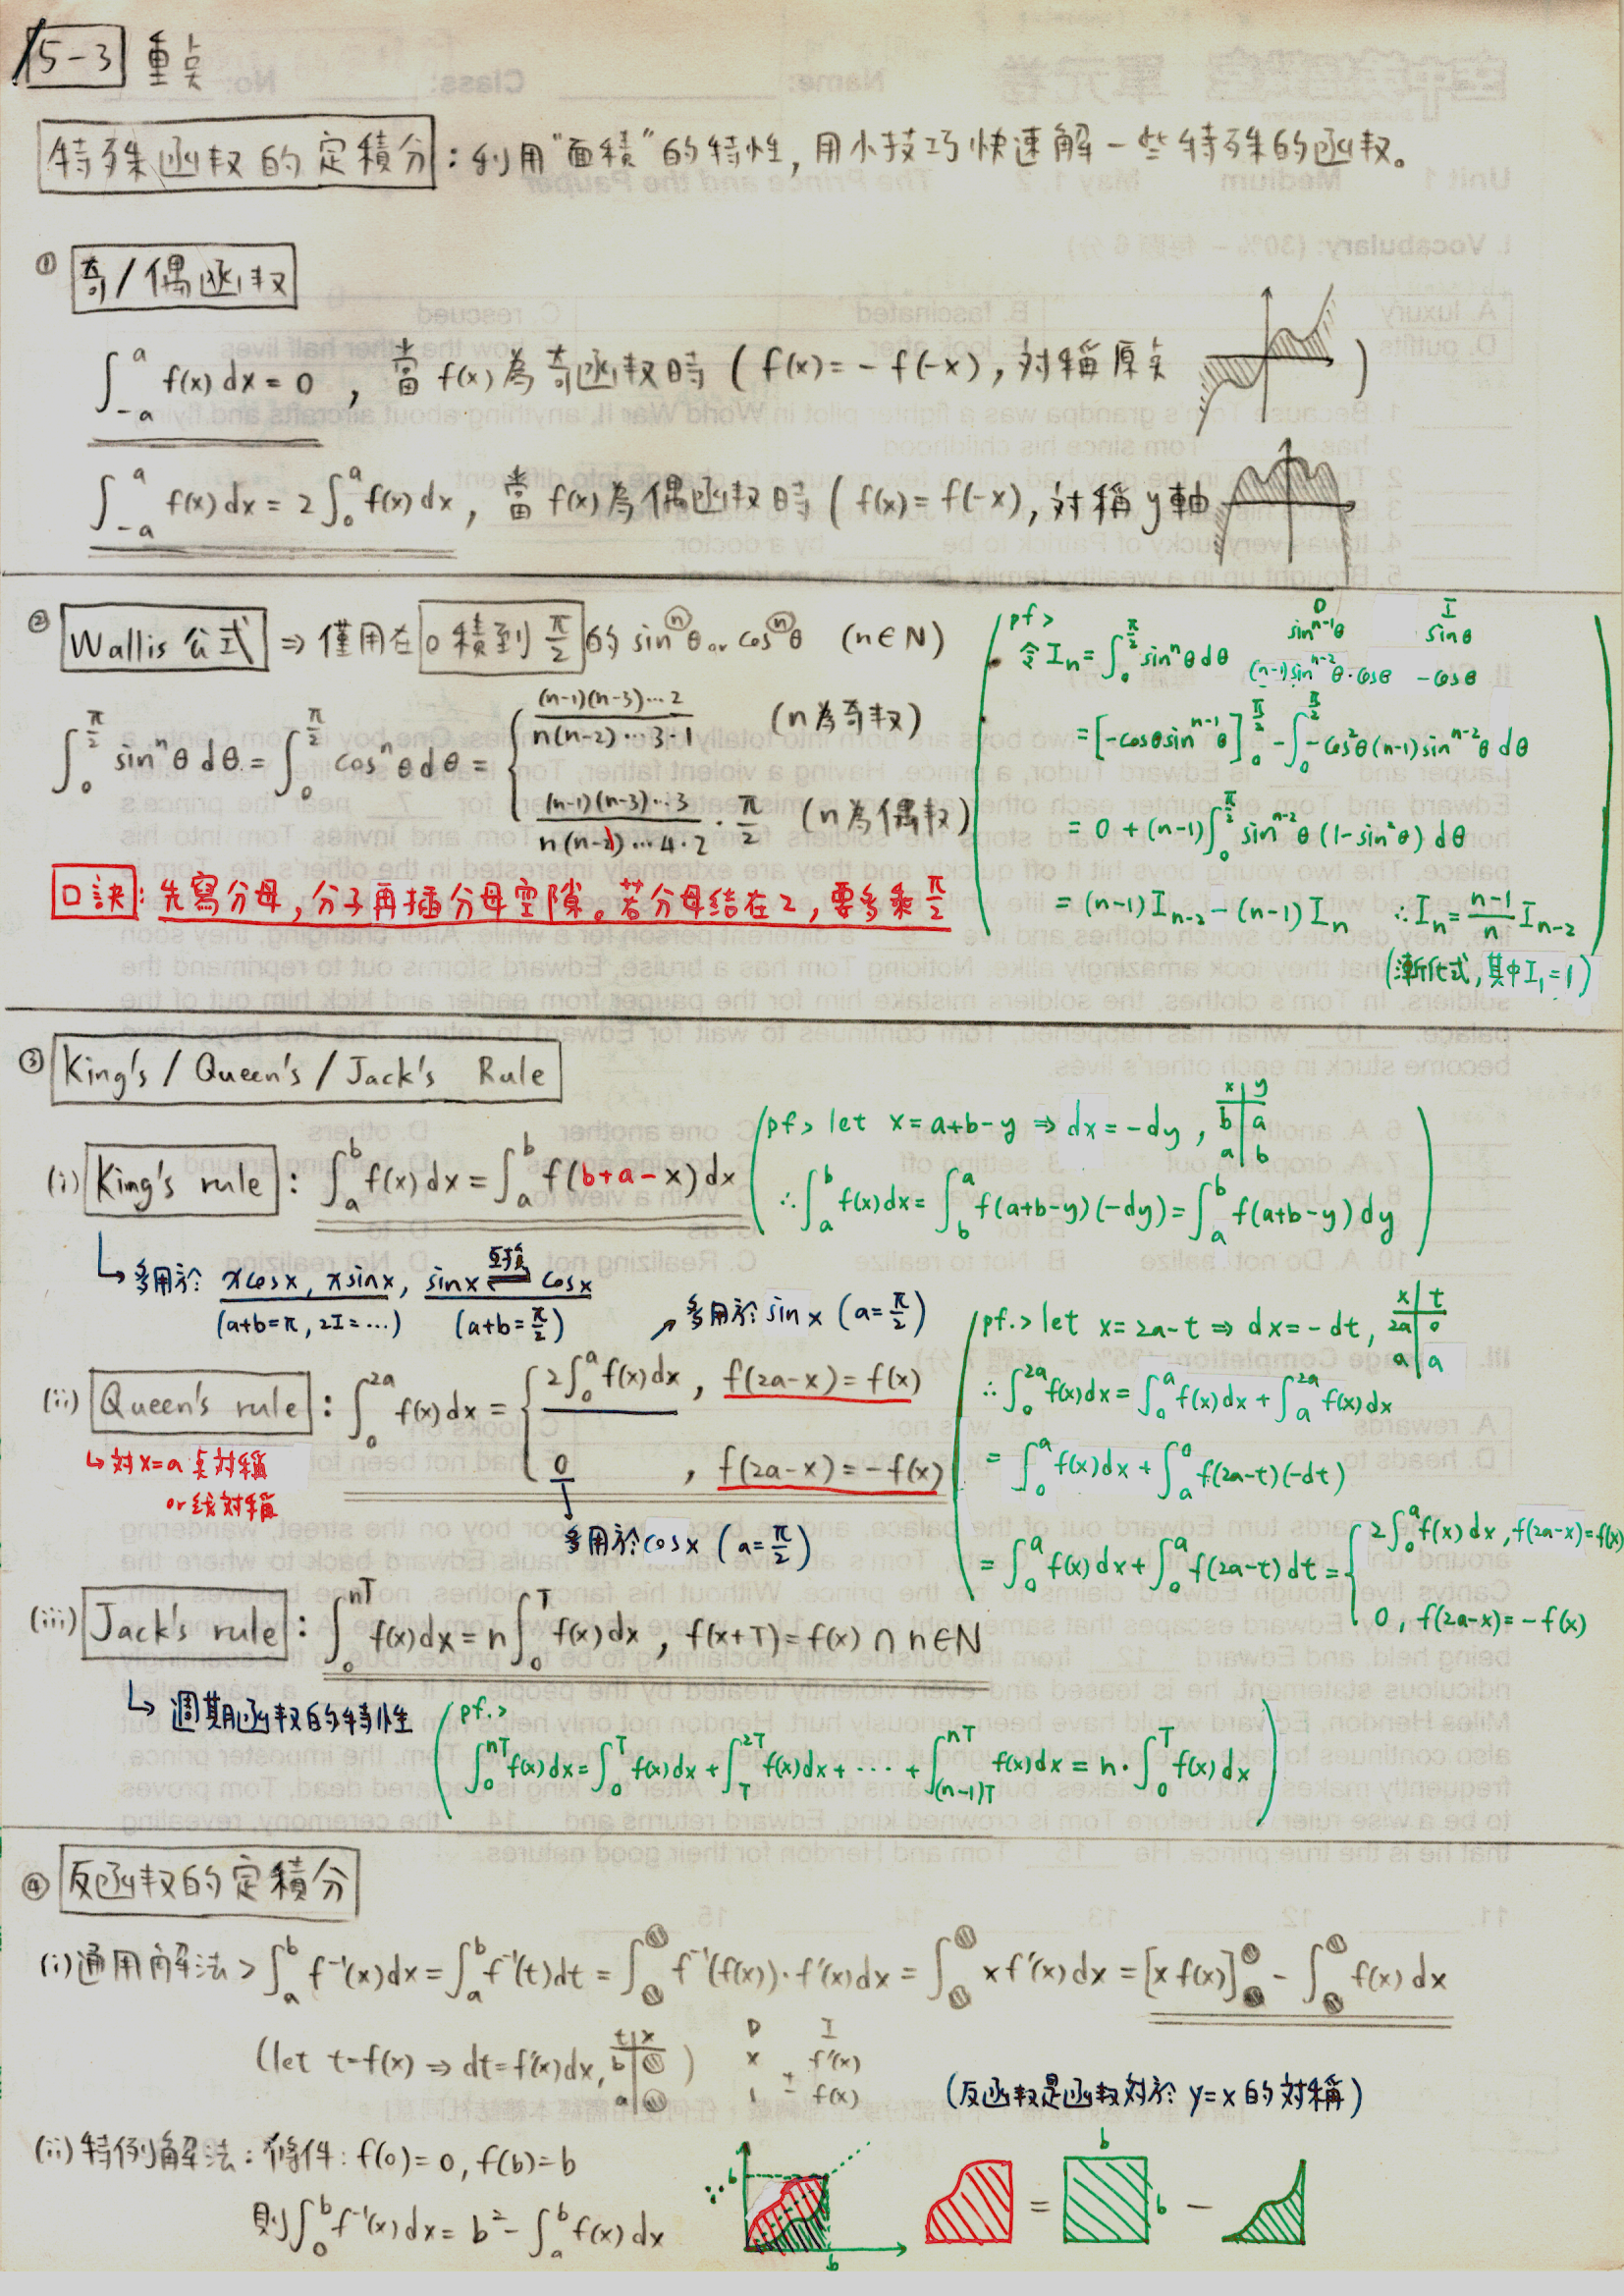 5-3 重点
特殊函数的定積分：利用"面積"的特性，用小技巧快速解一些特殊的函数。
① 奇/偶函数
∫_{-a}^{a} f(x) dx = 0 ，當 f(x) 為奇函数時 ( f(x) = -f(-x)，対稱原点 )
∫_{-a}^{a} f(x) dx = 2∫_0^a f(x) dx，當 f(x) 為偶函数時 ( f(x) = f(-x)，対稱 y 軸
② Wallis 公式 ⇒ 僅用在 0 積到 π/2 的 sin^n θ or cos^n θ (n∈N)
∫_0^{π/2} sin^n θ dθ = ∫_0^{π/2} cos^n θ dθ = { (n-1)(n-3)…2 / n(n-2)…3·1 (n為奇数)
(n-1)(n-3)…3 / n(n-2)…4·2 · π/2 (n為偶数)
口訣：先寫分母，分子再插分母空隙。若分母結在2，要多乘 π/2
pf>
令 I_n = ∫_0^{π/2} sin^n θ dθ
D I
sin^{n-1} θ sin θ
(n-1) sin^{n-2} θ · cos θ -cos θ
= [-cos θ sin^{n-1} θ]_0^{π/2} - ∫_0^{π/2} -cos² θ (n-1) sin^{n-2} θ dθ
= 0 + (n-1) ∫_0^{π/2} sin^{n-2} θ (1-sin² θ) dθ
= (n-1) I_{n-2} - (n-1) I_n ∴ I_n = (n-1)/n I_{n-2}
(漸化式，其中 I_1 = 1)
③ King's / Queen's / Jack's Rule
(i) King's rule : ∫_a^b f(x) dx = ∫_a^b f(b+a-x) dx
(pf> let x = a+b-y ⇒ dx = -dy , x | y
b | a
a | b
∴ ∫_a^b f(x) dx = ∫_b^a f(a+b-y)(-dy) = ∫_a^b f(a+b-y) dy )
↳ 多用於: x cos x, x sin x, sin x ⇌ cos x
互換
(a+b=π, 2I=…) (a+b=π/2)
↗ 多用於: sin x (a=π/2)
(ii) Queen's rule : ∫_0^{2a} f(x) dx = { 2∫_0^a f(x) dx , f(2a-x) = f(x)
0 , f(2a-x) = -f(x)
↳ 対 x=a 点対稱
or 线対稱
多用於: cos x (a=π/2)
(pf.> let x = 2a-t ⇒ dx = -dt, x | t
2a | 0
a | a
∴ ∫_0^{2a} f(x) dx = ∫_0^a f(x) dx + ∫_a^{2a} f(x) dx
= ∫_0^a f(x) dx + ∫_a^0 f(2a-t)(-dt)
= ∫_0^a f(x) dx + ∫_0^a f(2a-t) dt = { 2∫_0^a f(x) dx , f(2a-x) = f(x)
0 , f(2a-x) = -f(x)
(iii) Jack's rule : ∫_0^{nT} f(x) dx = n∫_0^T f(x) dx , f(x+T) = f(x) ∩ n∈N
↳ 週期函数的特性
(pf.>
∫_0^{nT} f(x) dx = ∫_0^T f(x) dx + ∫_T^{2T} f(x) dx + … + ∫_{(n-1)T}^{nT} f(x) dx = n·∫_0^T f(x) dx )
④ 反函数的定積分
(i) 通用解法 > ∫_a^b f⁻¹(x) dx = ∫_a^b f⁻¹(t) dt = ∫ f⁻¹(f(x))·f'(x) dx = ∫ x f'(x) dx = [x f(x)] - ∫ f(x) dx
(let t = f(x) ⇒ dt = f'(x) dx, t | x
b |
a | )
D I
x f'(x)
+
1 - f(x)
(反函数是函数対於 y=x 的対稱)
(ii) 特例解法：條件: f(0) = 0, f(b) = b
則 ∫_0^b f⁻¹(x) dx = b² - ∫_a^b f(x) dx
∵ b b = b b -